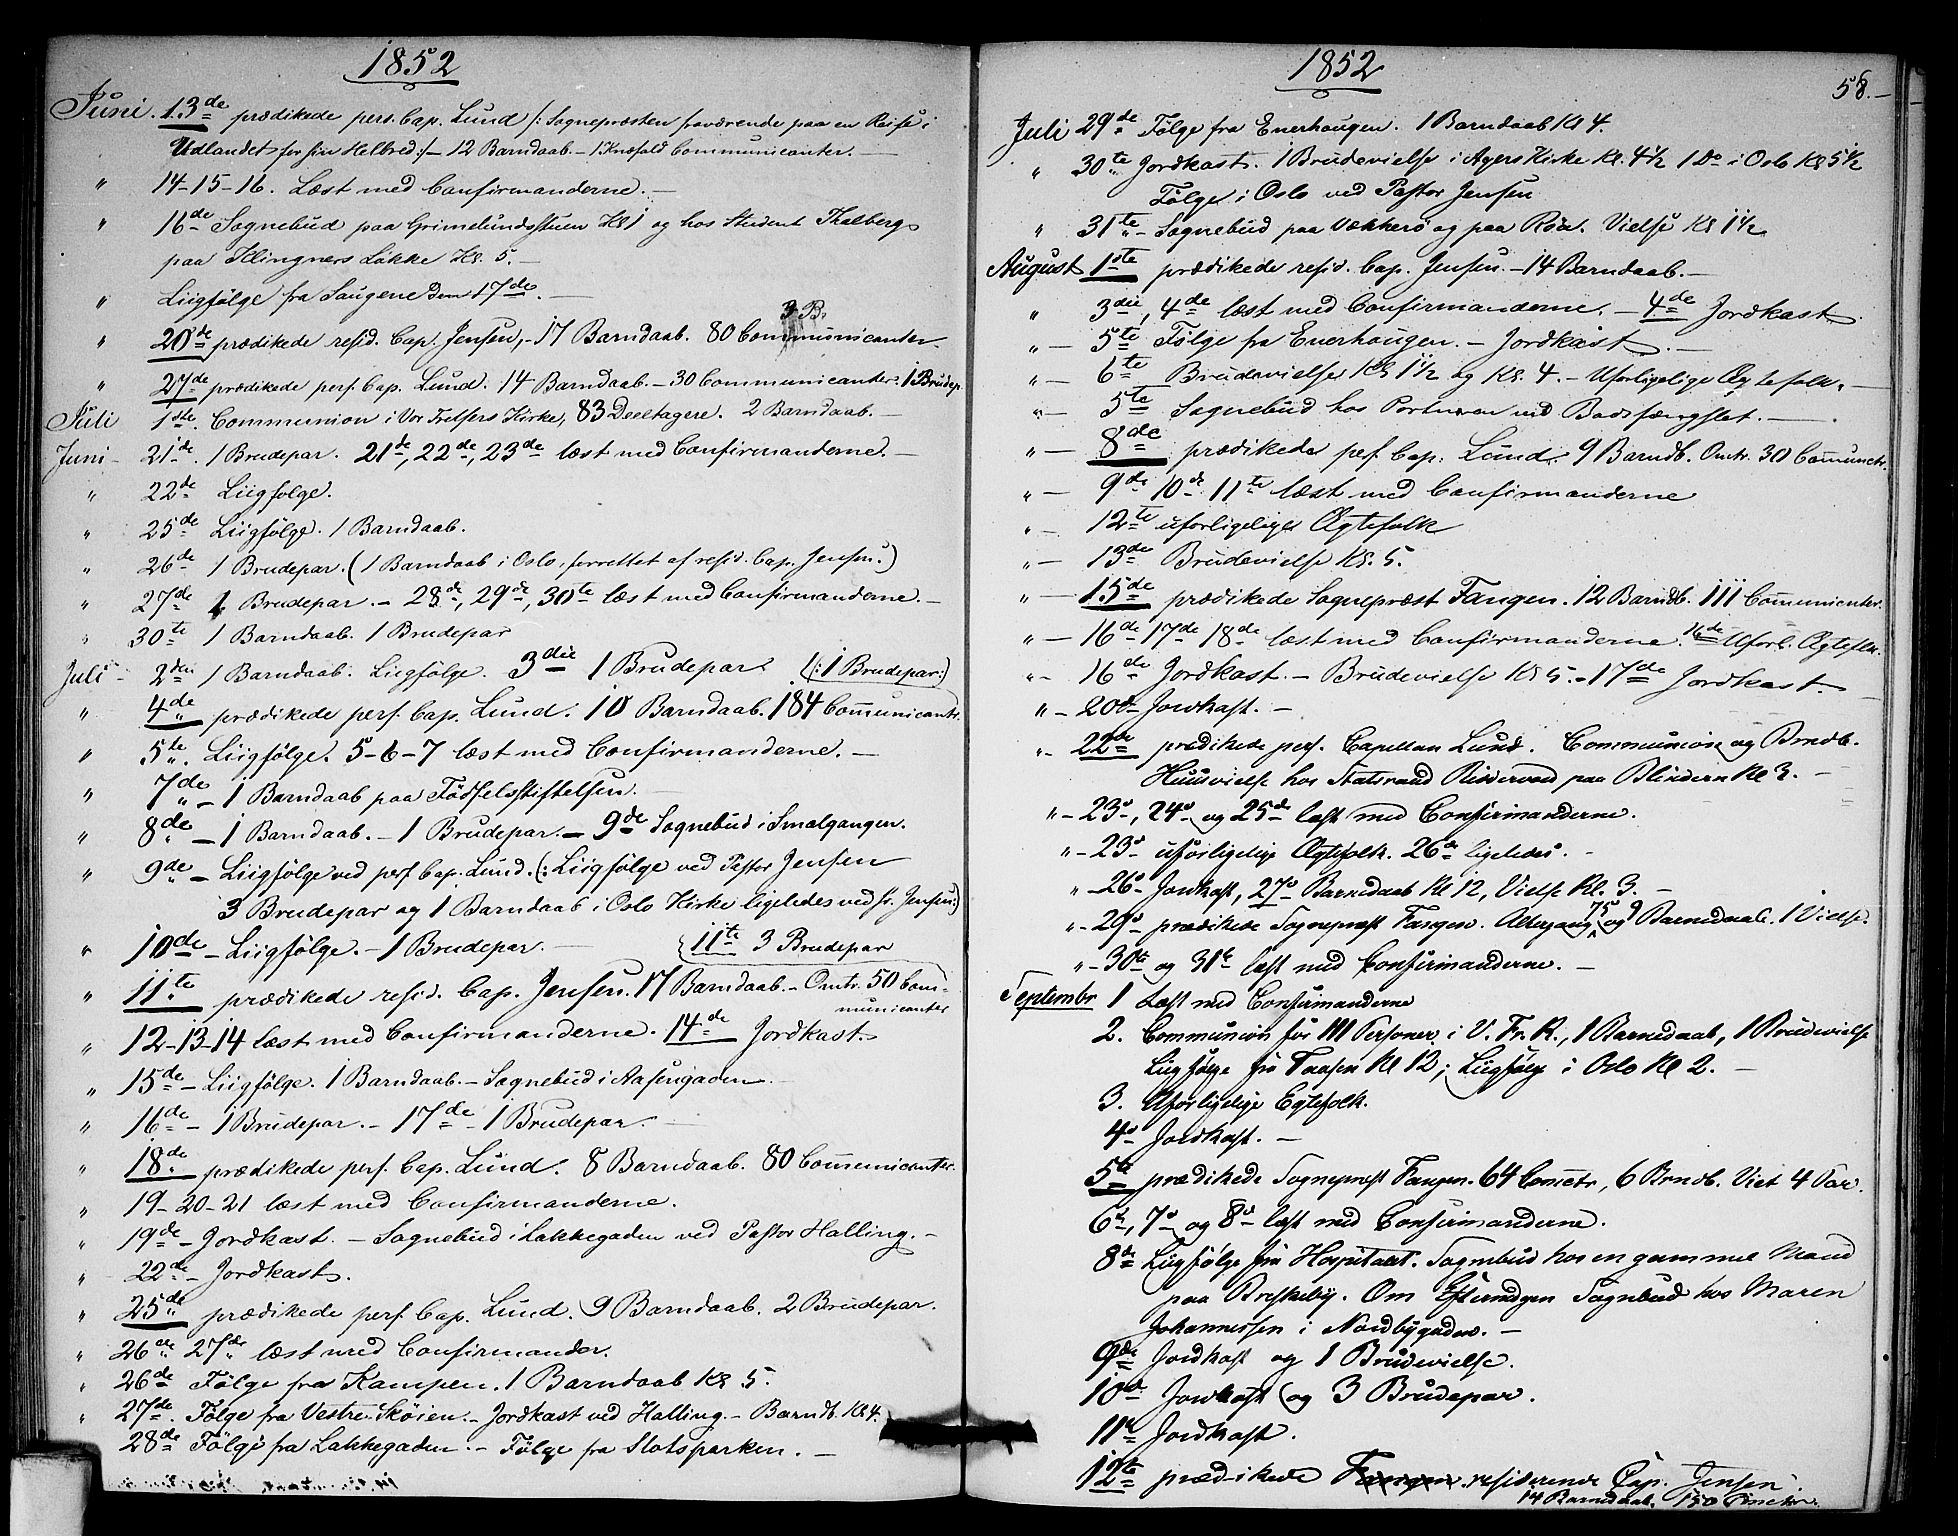 1852
Juni. 13de prædikede pers. Cap. Lund /: Sognepræsten fraværende paa en Reise i
Udlandet for sin Helbred :/ - 12 Barndaab. - 1 Knæfald Communicanter. -
" 14-15-16. Læst med Confirmanderne. -
" 16de Sognebud paa Grimelundsstuen Kl 1 og hos Student Thalberg
paa Klingners Løkke Kl. 5. -
" Liigfölge fra Saugene den 17de. -
3 B.
" 20de prædikede resid. Cap. Jensen, - 17 Barndaab. 80 Communicanter.
" 27de prædikede pers. Cap. Lund. 14 Barndaab. - 30 Communicanter. 1 Brudep.
Juli 1ste. Communion i Vor Frelsers Kirke, 83 Deeltagere. 2 Barndaab. -
Juni - 21de. 1 Brudepar. 21de, 22de, 23de læst med Confirmanderne. -
" 22de Liigfolge.
" 25de Liigfölge. 1 Barndaab.
" 26de 1 Brudepar. (1 Barndaab i Oslo, forrettet af resid. Cap. Jensen.)
" 27de 1 Brudepar. - 28de, 29de, 30te læst med Confirmanderne. -
" 30te 1 Barndaab. 1 Brudepar
Juli - 2den 1 Barndaab. Liigfölge. 3die 1 Brudepar. (: 1 Brudepar :)
" 4de prædikede pers. Cap. Lund. 10 Barndaab. 184 Comunicantr.
" 5te. Liigfölge. 5-6-7 læst med Confirmanderne. -
" 7de - 1 Barndaab paa Födselsstiftelsen. -
" 8de - 1 Barndaab. - 1 Brudepar. - 9de Sognebud i Smalgangen.
" 9de - Liigfölge ved pers. Cap. Lund. (: Liigfölge ved Pastor Jensen
3 Brudepar og 1 Barndaab i Oslo Kirke ligeledes ved Hr. Jensen :)
" 10de - Liigfölge. - 1 Brudepar. - (11te 3 Brudepar
" 11te prædikede resid. Cap. Jensen. 17 Barndaab. - Omtr. 50 Com-
municanter
" 12-13-14 læst med Confirmanderne. 14de Jordkast.
" 15de - Liigfölge. 1 Barndaab. - Sognebud i Aasengaden. -
" 16de - 1 Brudepar. - 17de - 1 Brudepar. -
" 18de. prædikede pers. Cap. Lund. 8 Barndaab. 80 Communicanter.
" 19-20-21 læst med Confirmanderne.
" 19de - Jordkast. - Sognebud i Lakkegaden ved Pastor Halling. -
" 22de - Jordkast.
" 25de prædikede pers. Cap. Lund. 9 Barndaab. 2 Brudepar.
" 26de 27de læst med Confirmander.
" 26de Fölge fra Kampen. 1 Barndaab Kl 5.
" 27de. Fölge fra Vestre Skøien. - Jordkast ved Halling. - Barndb. Kl 4.
" 28de Fölge fra Lakkegaden. - Fölge fra Slotsparken. -
1852
58. -
Juli 29de Fölge fra Enerhaugen. 1 Barndaab Kl 4.
" 30te Jordkast. 1 Brudevielse i Agers Kirke Kl. 4½ 1 Do i Oslo Kl 5½
Fölge i Oslo ved Pastor Jensen
" 31te - Sognebud paa Vækkerö og paa Röa. Vielse Kl 1½
August 1ste prædikede resid. Cap. Jensen. - 14 Barndaab. -
" 3die, 4de læst med Confirmanderne. - 4de Jordkast.
" - 5te Fölge fra Enerhaugen. - Jordkast. -
" - 6te Brudevielse Kl 1½ og Kl. 4. - Uforligelige Ægtefolk. -
" - 5te Sognebud hos Portneren ved Bodsfængslet. -
" - 8de prædikede pers. Cap. Lund. 9 Barndb. Omtr. 30 Comunctr.
" - 9de 10de 11te læst med Confirmanderne
" - 12te uforligelige Ægtefolk
" - 13de Brudevielse Kl. 5.
" - 15de prædikede Sognepræst Fangen. 12 Barndb. 111 Communicanter.
" - 16de 17de 18de læst med Confirmanderne. 16de Uforl. Ægtefolk.
" - 16de Jordkast. - Brudevielse Kl 5. - 17de Jordkast. -
" - 20de Jordkast. -
" - 22de prædikede pers. Capellan Lund. Communion og Brndb.
Huusvielse hos Statsraad Riddervold paa Blindern Kl 3. -
" - 23de, 24de og 25de læst med Confirmanderne.
" - 23de uforligelige Ægtefolk. 26de ligeledes. -
" - 26de Jordkast, 27de Barnedaab Kl 12, Vielse Kl. 3. -
" - 29de prædikede Sognepræst Fangen. Altergang 75 og 9 Barnedaab. 1 Vielse.
" - 30te og 31te læst med Confirmanderne. -
Septembr 1 Læst med Confirmanderne
2. Communion for 111 Personer i V. Fr. K., 1 Barnedaab, 1 Brudevielse
Liigfølge fra Faasen Kl 12; Liigfølge i Oslo Kl 2. -
3. Uforligelige Egtefolk.
4de Jordkast. -
5te prædikede Sognepræst Fangen. 64 Cometr, 6 Brndb. Viet 4 Par.
6te, 7de og 8de læst med Confirmanderne.
8de Liigfølge fra Hospitalet. Sognebud hos en gammel Mand
paa Briskeby. Om Eftermdgen Sognebud hos Maren
Johannessen i Nordbygaden. -
9de Jordkast og 1 Brudevielse.
10de Jordkast og 3 Brudepar.
11te Jordkast.
12te prædikede Fangen residerende Cap. Jensen.
14 Barnedaab. 150